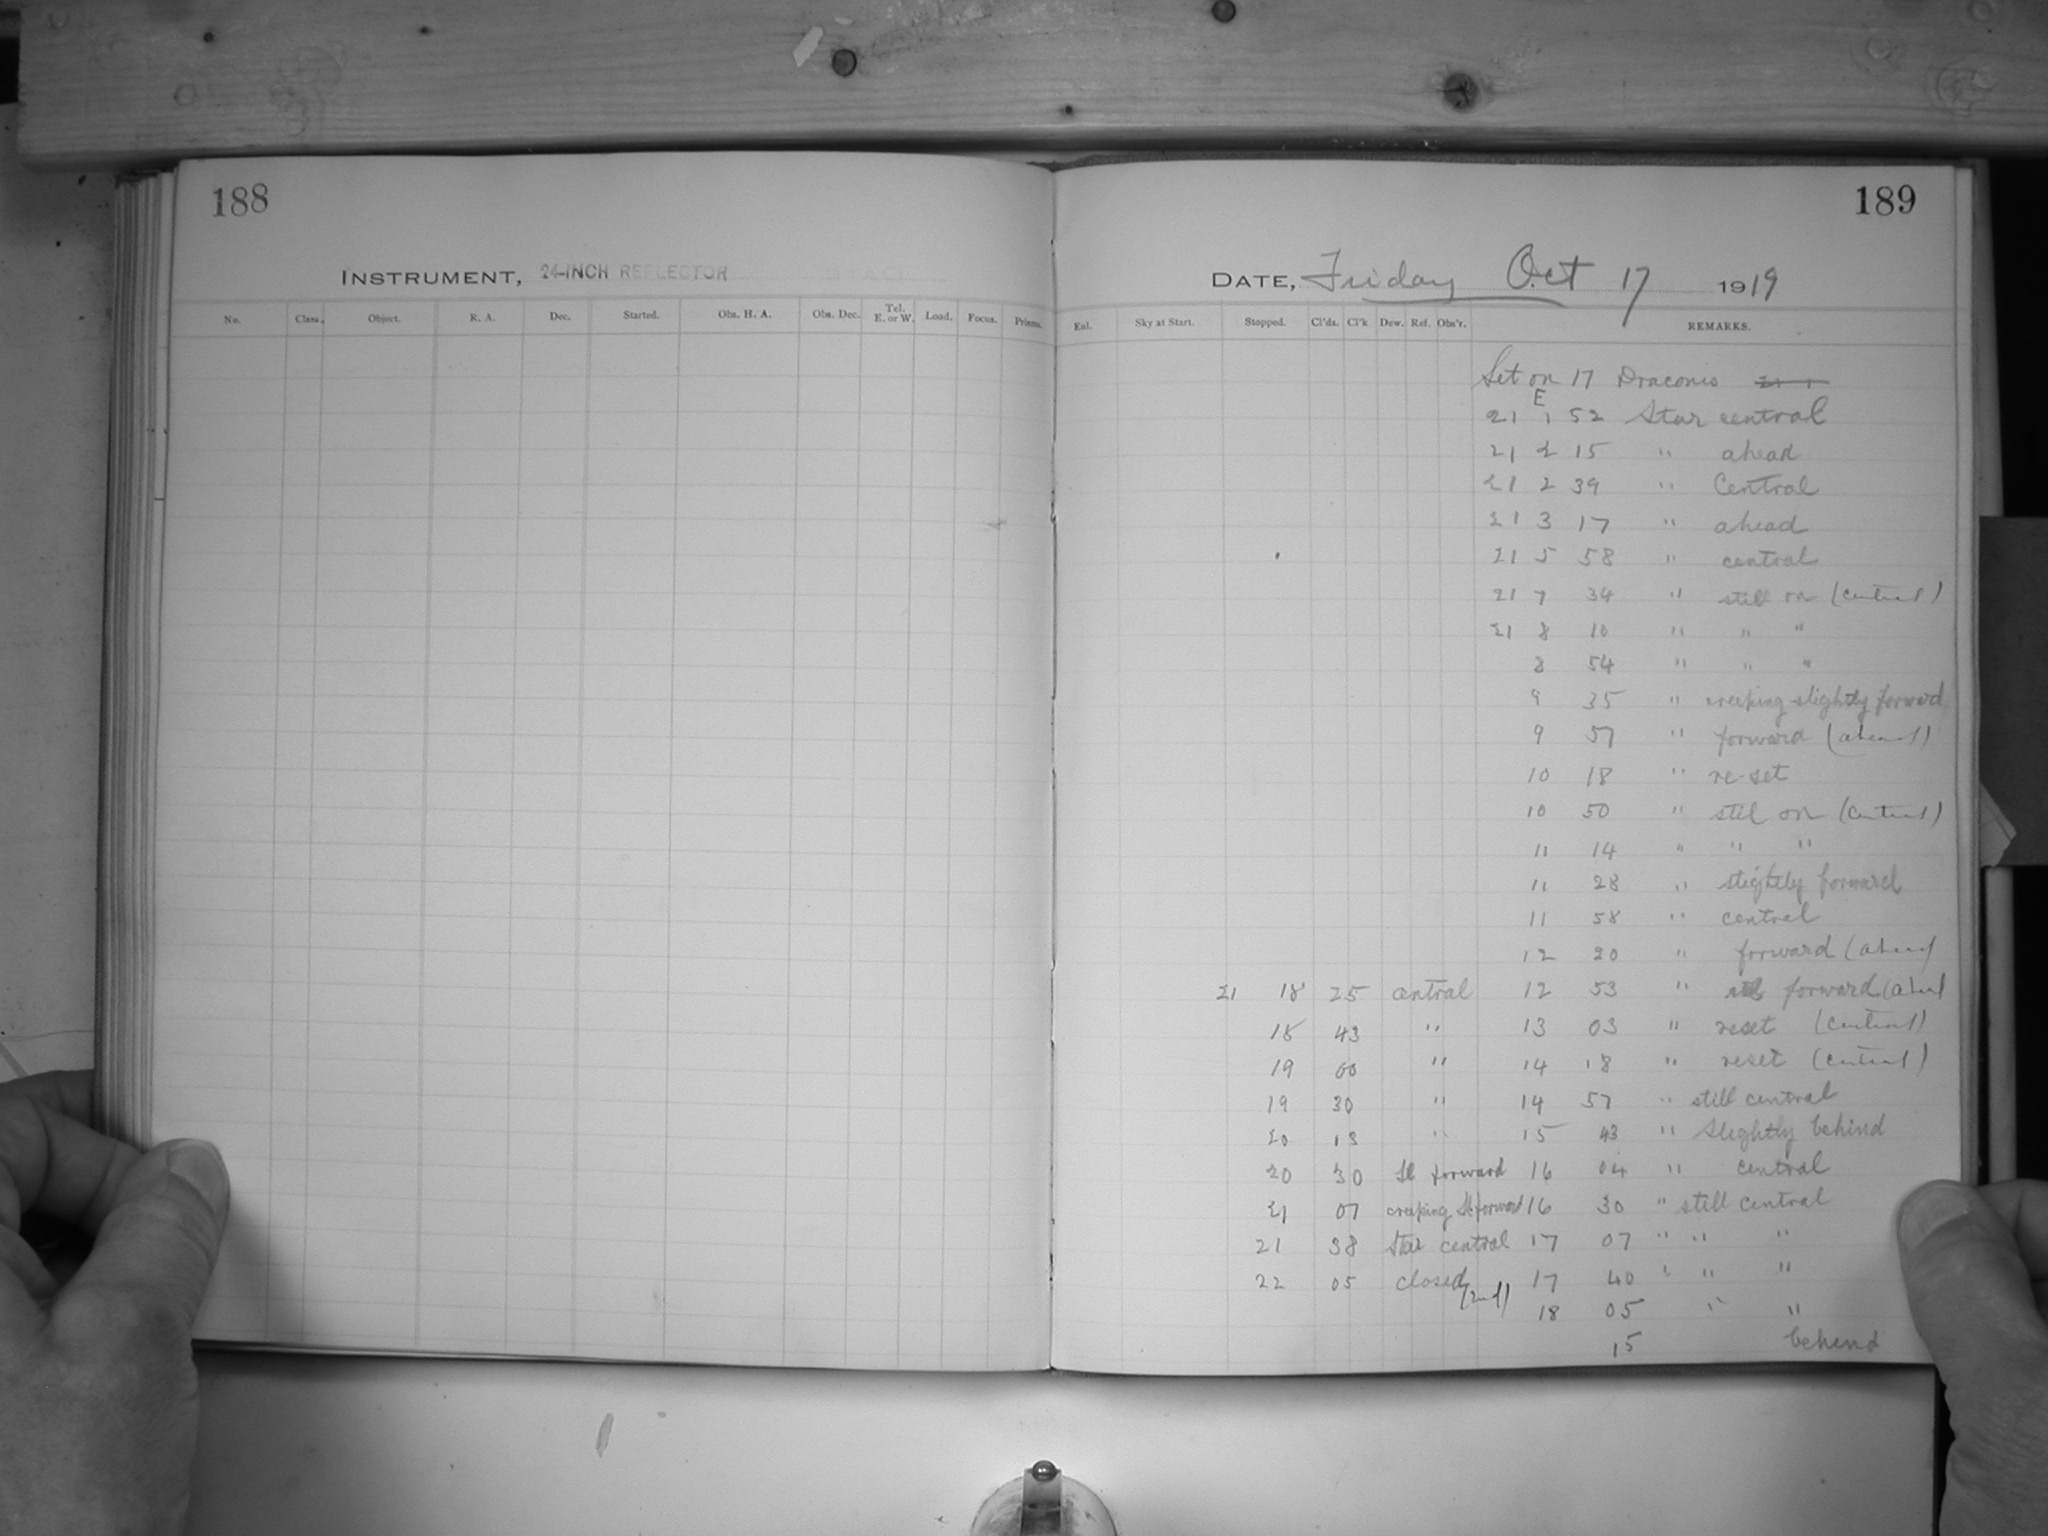 188
INSTRUMENT, 24-INCH REFLECTOR
No. Class. Object. R. A. Dec. Started. Obs. H. A. Obs. Dec. Tel. E. or W. Load. Focus. Prisms.
189
DATE, Friday Oct 17 1919
Eal. Sky at Start. Stopped. Cl'ds. Cl'k Dew. Ref. Obs'r. REMARKS.
Set on 17 Draconis
E
21 1 52 Star central
21 2 15 " ahead
21 2 39 " Central
21 3 17 " ahead
21 5 58 " central
21 7 34 " still on (central)
21 8 10 " " "
8 54 " " "
9 35 " creeping slightly forward
9 57 " forward (ahead)
10 18 " re-set
10 50 " still on (central)
11 14 " " "
11 28 " slightly forward
11 58 " central
12 20 " forward (ahead)
12 53 " forward (ahead
13 03 " reset (central)
14 18 " reset (central)
14 57 " still central
15 43 " Slightly behind
16 04 " central
16 30 " still central
17 07 " " "
17 40 " " "
18 05 " "
15 behind
21 18 25 central
18 43 "
19 00 "
19 30 "
20 13 "
20 30 Sl forward
21 07 creeping Sl forward
21 38 Star central
22 05 closed (2nd)